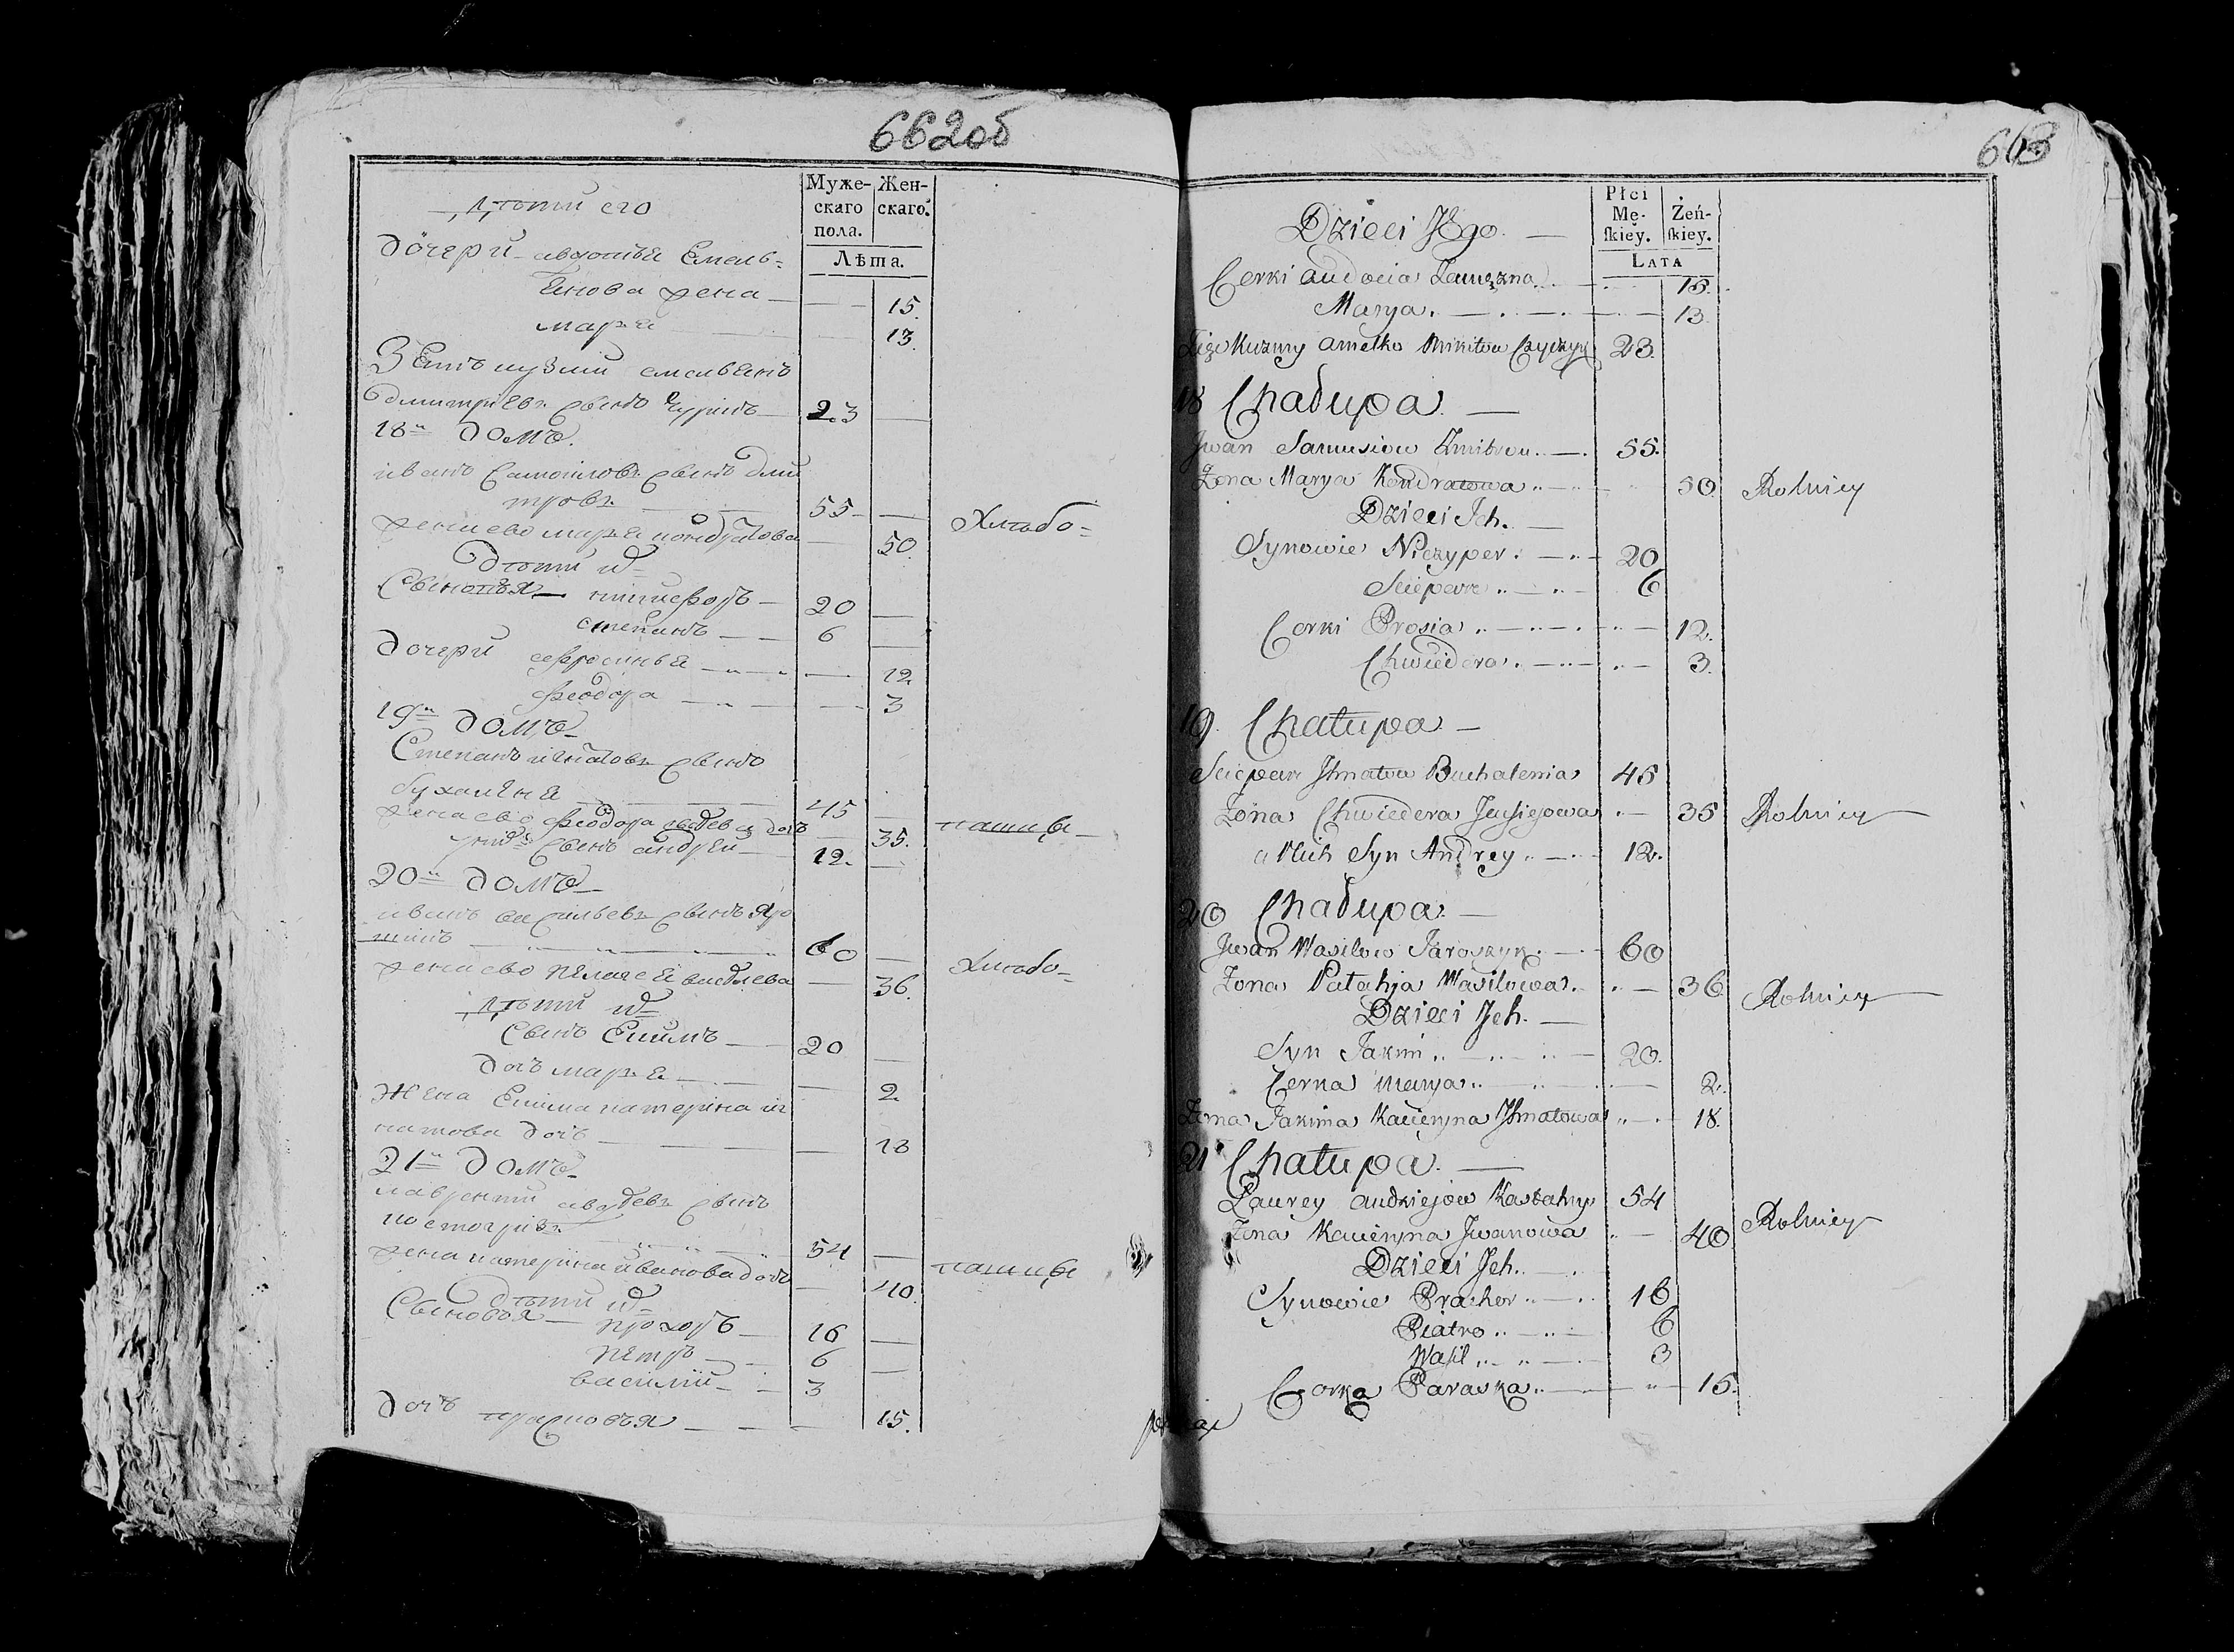 662об
Муже- Жен-
скаго скаго.
пола.
Лѣта.
Дѣти его
Дочери авдотья Емель-
янова жена — 15.
марья 13.
Зять кузмы емельянъ
дмитриевъ сынъ 23
18й домъ.
иванъ Самойловъ сынъ дми
тровъ 55
жена ево марья кондратова — 50.
Хлѣбо-
Дѣти их
Сыновья никифоръ — 20
степанъ — 6
дочери ефросинья — 12
феодора — 3
19й домъ
Степанъ игнатовъ сынъ
бухаленя 45
жена ево феодора дочь — 35.
пашцы
у них сынъ андрей 12.
20й домъ
иванъ васильевъ сынъ Яро
шикъ 60
жена ево пелагея василева — 36.
Хлѣбо-
Дѣти их
Сынъ Екимъ — 20
дочь марья — 2
Жена Екима катерина иг
натова дочь — 18
21й домъ
лаврентий сынъ
54
жена катерина иванова дочь — 40.
пашцы
Дѣти их
Сыновья — прохоръ — 16
петръ — 6
василий — 3
дочь прасковья — 15.
663
Płci
Mę- Żeń-
skiey. skiey.
LATA
Dzieci Jego. —
Corki Audocia Zamęzna 15.
Marya. — 13.
Zięć Kuzmy Amelko Mikitow 23.
18 Chałupa. —
Jwan Samusiow Zmitrow — 55.
Zona Marya Kondratowa — 50 Rolnicy
Dzieci Jch. —
Synowie Niczyper. — 20
Sciepan — 6
Corki Prosia — 12.
Chwiedora — 3.
19. Chałupa —
Sciepan Jhnatow Buchalenia 45
Zona Chwiedora — 35 Rolnicy
a Nich Syn Andrey — 12.
20 Chałupa. —
Jwan Wasilow Jaroszyk. — 60
Zona Patahja Wasilowa. — 36 Rolnicy
Dzieci Jch. —
Syn Jakim — 20.
Corka Marya — 2.
Zona Jakima Kacieryna Jhnatowa — 18.
21 Chałupa. —
Łaurey Audziejow 54
Zona Kacieryna Jwanowa — 40 Rolnicy
Dzieci Jch. —
Synowie Prachor — 16
Piatro — 6
Wasil — 3
Corka Paraska — 15.